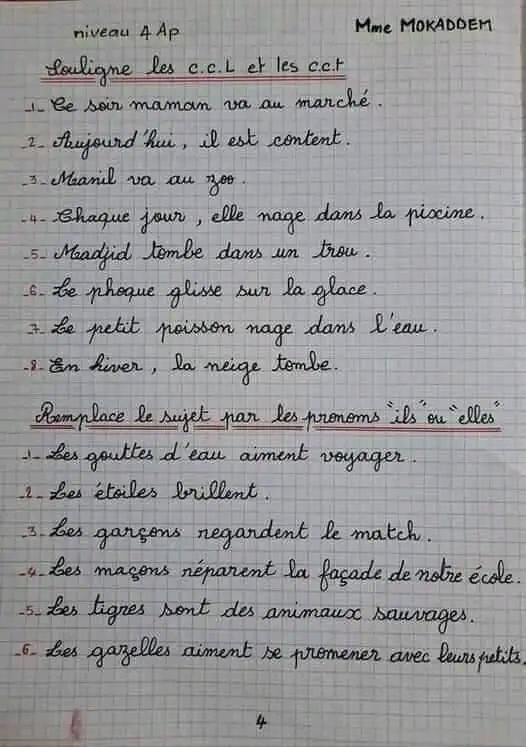 niveau 4 Ap
Mme MOKADDEM
Souligne les c.c.L et les c.c.t
_1_ Ce soir maman va au marché.
_2_ Aujourd'hui, il est content.
_3_ Manil va au zoo.
_4_ Chaque jour, elle nage dans la piscine.
_5_ Madjid tombe dans un trou.
_6_ Le phoque glisse sur la glace.
_7_ Le petit poisson nage dans l'eau.
_8_ En hiver, la neige tombe.
Remplace le sujet par les pronoms "ils" ou "elles"
_1_ Les gouttes d'eau aiment voyager.
_2_ Les étoiles brillent.
_3_ Les garçons regardent le match.
_4_ Les maçons réparent la façade de notre école.
_5_ Les tigres sont des animaux sauvages.
_6_ Les gazelles aiment se promener avec leurs petits.
4